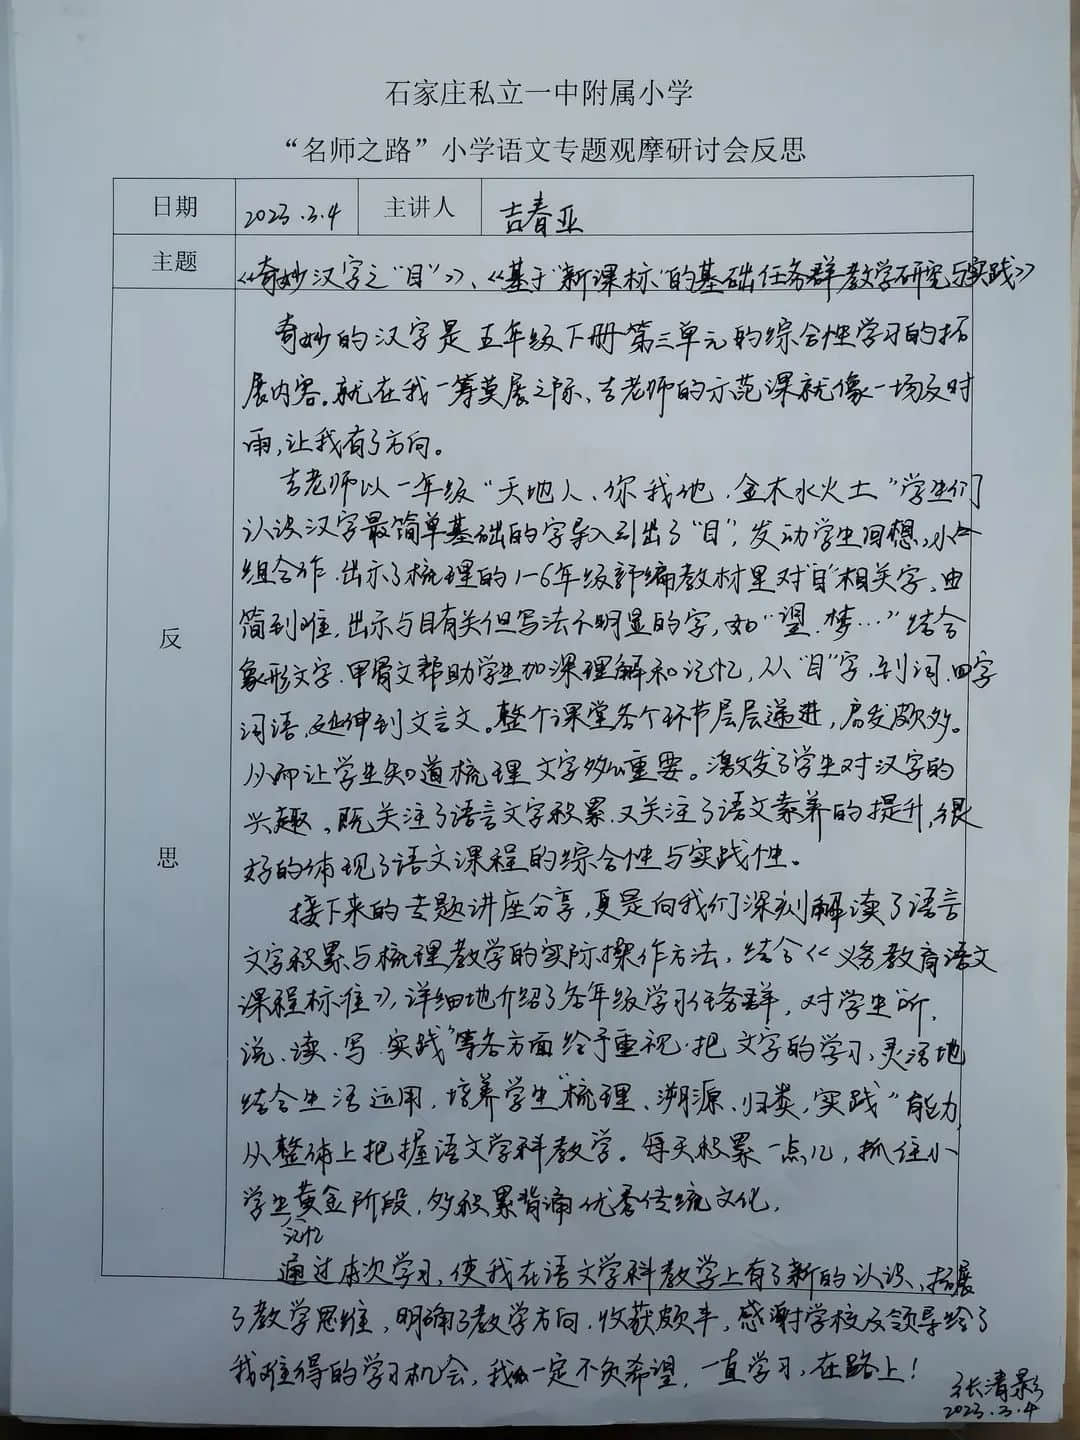 石家庄私立一中附属小学
“名师之路”小学语文专题观摩研讨会反思
日期 2023.3.4 主讲人 吉春亚
主题 《奇妙汉字之“目”》、《基于“新课标”的基础任务群教学研究与实践》
反思
奇妙的汉字是五年级下册第三单元的综合性学习的拓
展内容。就在我一筹莫展之际、吉老师的示范课就像一场及时
雨,让我有了方向。
吉老师以一年级“天地人、你我他、金木水火土”学生们
认识汉字最简单基础的字导入引出了“目”,发动学生回想,小
组合作.出示了梳理的1-6年级部编教材里对“目”相关字、由
简到难,出示与目有关但写法不明显的字,如“望.梦…”结合
象形文字.甲骨文帮助学生加深理解和记忆,从“目”字,到词.四字
词语,延伸到文言文。整个课堂各个环节层层递进,启发颇多。
从而让学生知道梳理文字多么重要。激发了学生对汉字的
兴趣、既关注了语言文字积累.又关注了语文素养的提升,很
好的体现了语文课程的综合性与实践性。
接下来的专题讲座分享,更是向我们深刻解读了语言
文字积累与梳理教学的实际操作方法,结合《义务教育语文
课程标准》,详细地介绍了各年级学习任务群,对学生“听、
说、读、写、实践”等各方面给予重视.把文字的学习,灵活地
结合生活运用,培养学生“梳理、溯源、归类,实践”能力,
从整体上把握语文学科教学。每天积累一点儿,抓住小
学生黄金阶段,多积累背诵优秀传统文化,
记忆
通过本次学习,使我在语文学科教学上有了新的认识、拓展
了教学思维,明确了教学方向.收获颇丰,感谢学校及领导给了
我难得的学习机会,我一定不负希望,一直学习,在路上!
张清影
2023.3.4